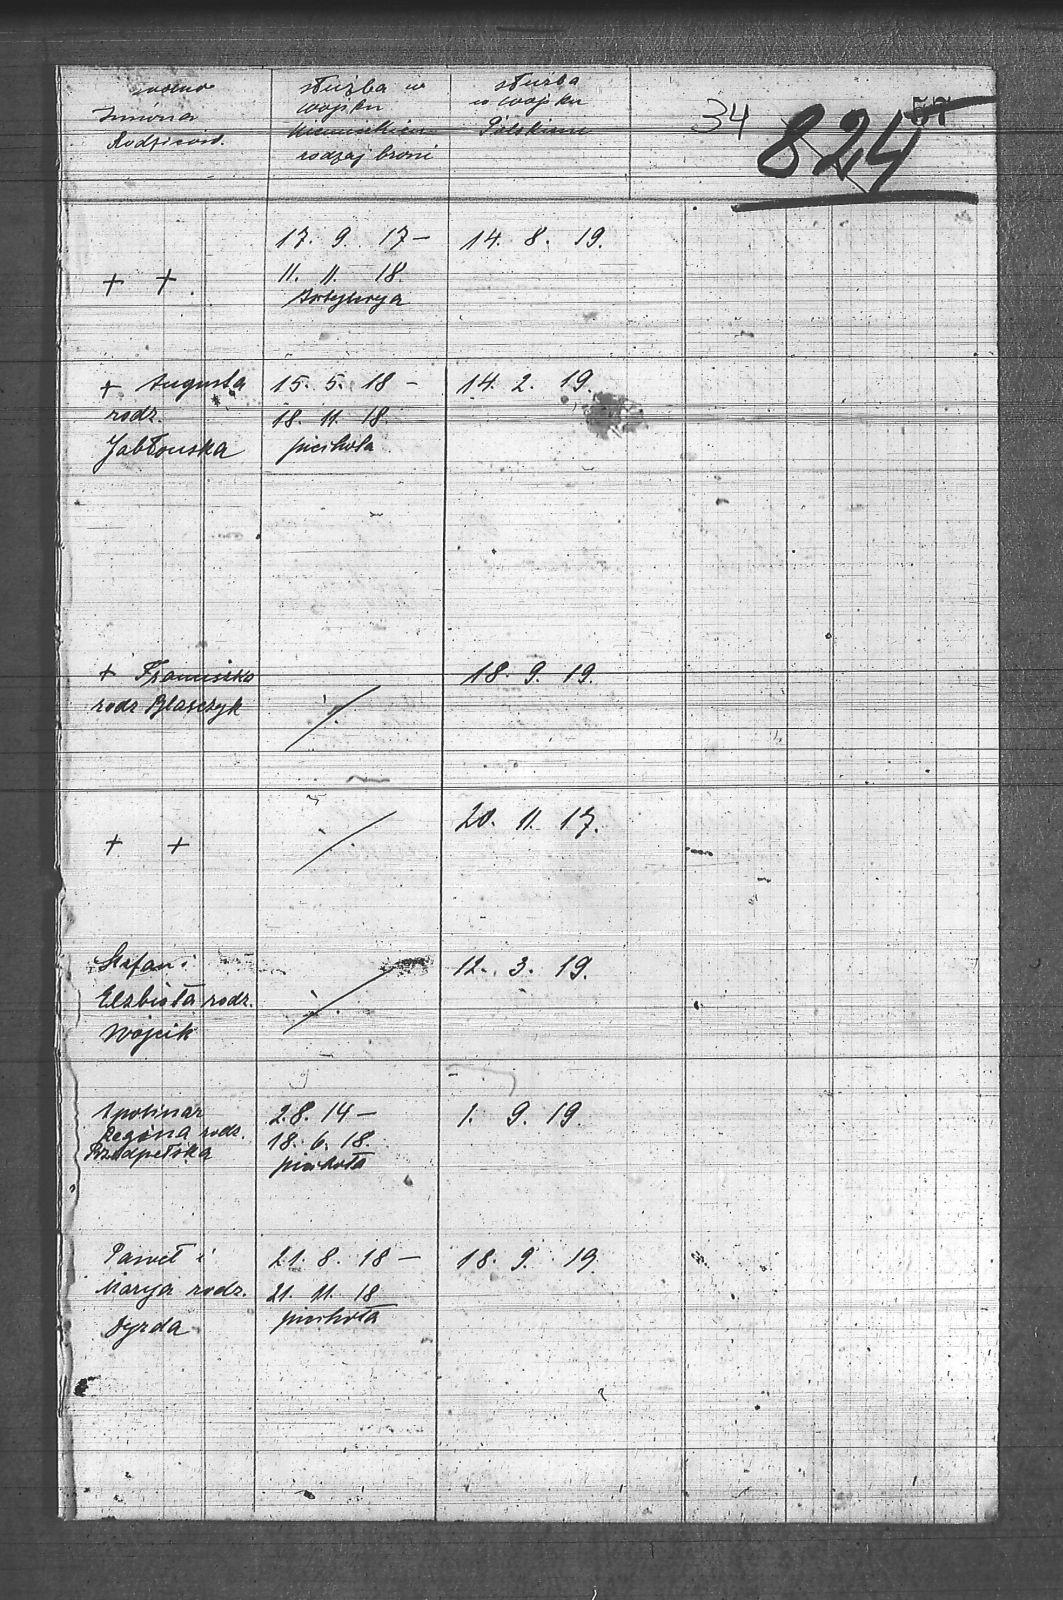 Imiona
Rodziców.
służba w
wojsku
niemieckiem
rodzaj broni
służba
w wojsku
Polskiem
34
824
57
17. 9. 17 –
11. 11. 18.
Artylerya
14. 8. 19.
+ +
+ Augusta
rodz.
Jabłonska
15. 5. 18 –
18. 11. 18.
piechota
14. 2. 19.
+ Franciszka
rodz Blaszczyk
18. 9. 19.
+ +
20. 11. 17.
Stefan i
Elzbieta rodz.
Wojcik
12. 3. 19.
Apolinar
Regina rodz.
2. 8. 14 –
18. 6. 18.
piechota
1. 9. 19.
Paweł i
Marya rodz.
Dyrda
21. 8. 18 –
21. 11. 18
piechota
18. 9. 19